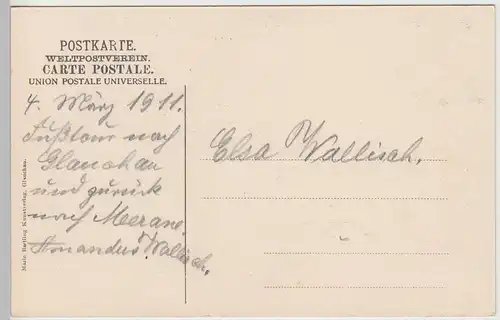 POSTKARTE.
WELTPOSTVEREIN.
CARTE POSTALE.
UNION POSTALE UNIVERSELLE.
4. März 1911.
Fußtour nach
Glauchau
und zurück
nach Meerane.
Amandus Wallisch.
Elsa Wallisch.
Kunstverlag, Glauchau.